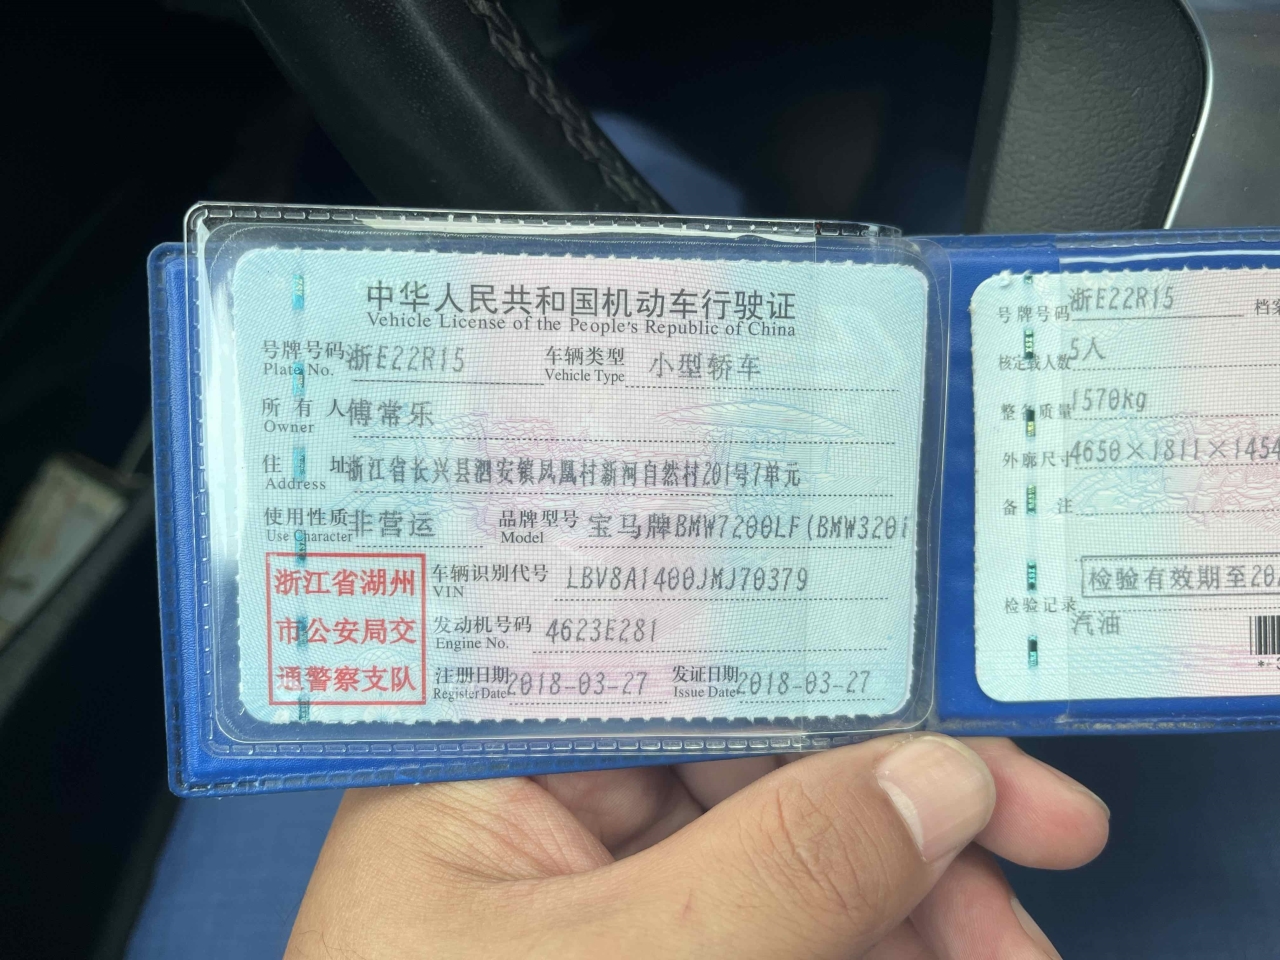 中华人民共和国机动车行驶证
Vehicle License of the People's Republic of China
号牌号码 浙E22R15 车辆类型 小型轿车
Plate No. Vehicle Type
所有人 傅常乐
Owner
住址 浙江省长兴县泗安镇凤凰村新河自然村201号7单元
Address
使用性质 非营运 品牌型号 宝马牌BMW7200LF(BMW320i
Use Character Model
浙江省湖州
市公安局交
通警察支队
车辆识别代号 LBV8A1400JMJ70379
VIN
发动机号码 4623E281
Engine No.
注册日期 2018-03-27 发证日期 2018-03-27
Register Date Issue Date
号牌号码 浙E22R15 档案
核定载人数 5人
整备质量 1570kg
外廓尺寸 4650×1811×1454
备注
检验有效期至20
检验记录
汽油